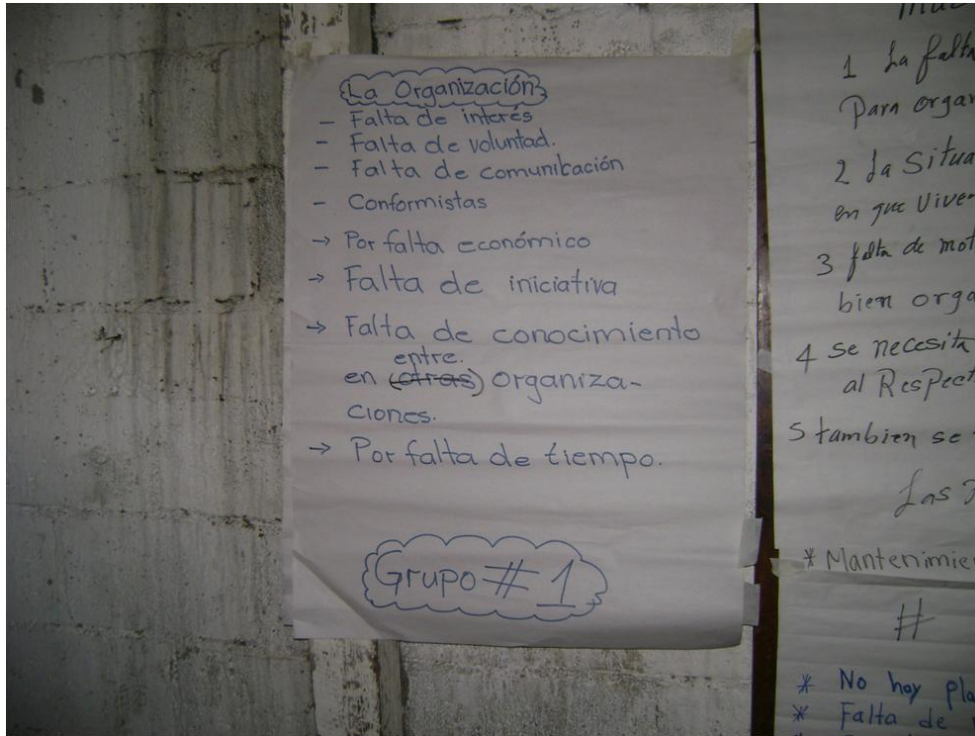 La Organización
- Falta de interés
- Falta de voluntad.
- Falta de comunicación
- Conformistas
→ Por falta económico
→ Falta de iniciativa
→ Falta de conocimiento
entre.
en (otras) organiza-
ciones.
→ Por falta de tiempo.
Grupo # 1
1 La falta
Para organ
2 La Situa
en que Viven
3 falta de mot
bien orga
4 Se necesita
al Respect
5 tambien se
Las
* Mantenimie
#
* No hay pla
* Falta de